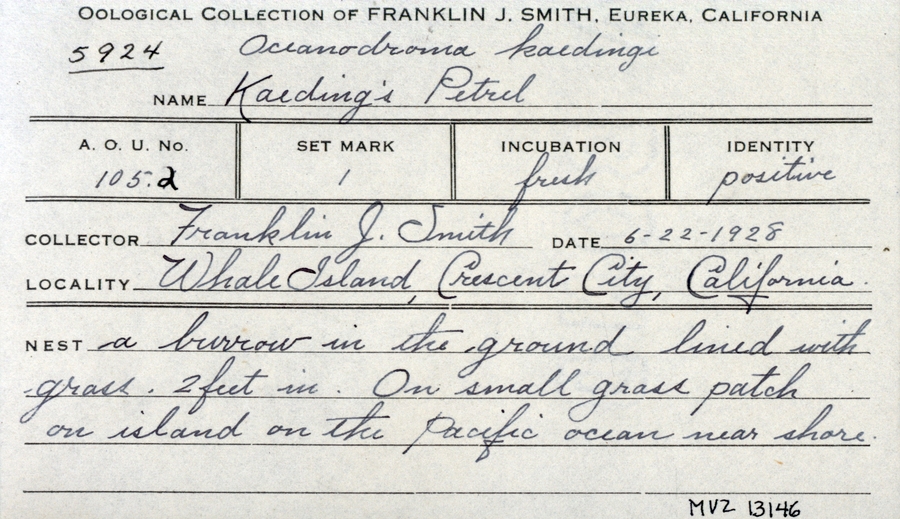 OOLOGICAL COLLECTION OF FRANKLIN J. SMITH, EUREKA, CALIFORNIA
5924 Oceanodroma kaedingi
NAME Kaeding's Petrel
A. O. U. No. SET MARK INCUBATION IDENTITY
105.2 1 fresh positive
COLLECTOR Franklin J. Smith DATE 6-22-1928
LOCALITY Whale Island, Crescent City, California.
NEST a burrow in the ground lined with
grass. 2 feet in. On small grass patch
on island on the Pacific ocean near shore.
MVZ 13146